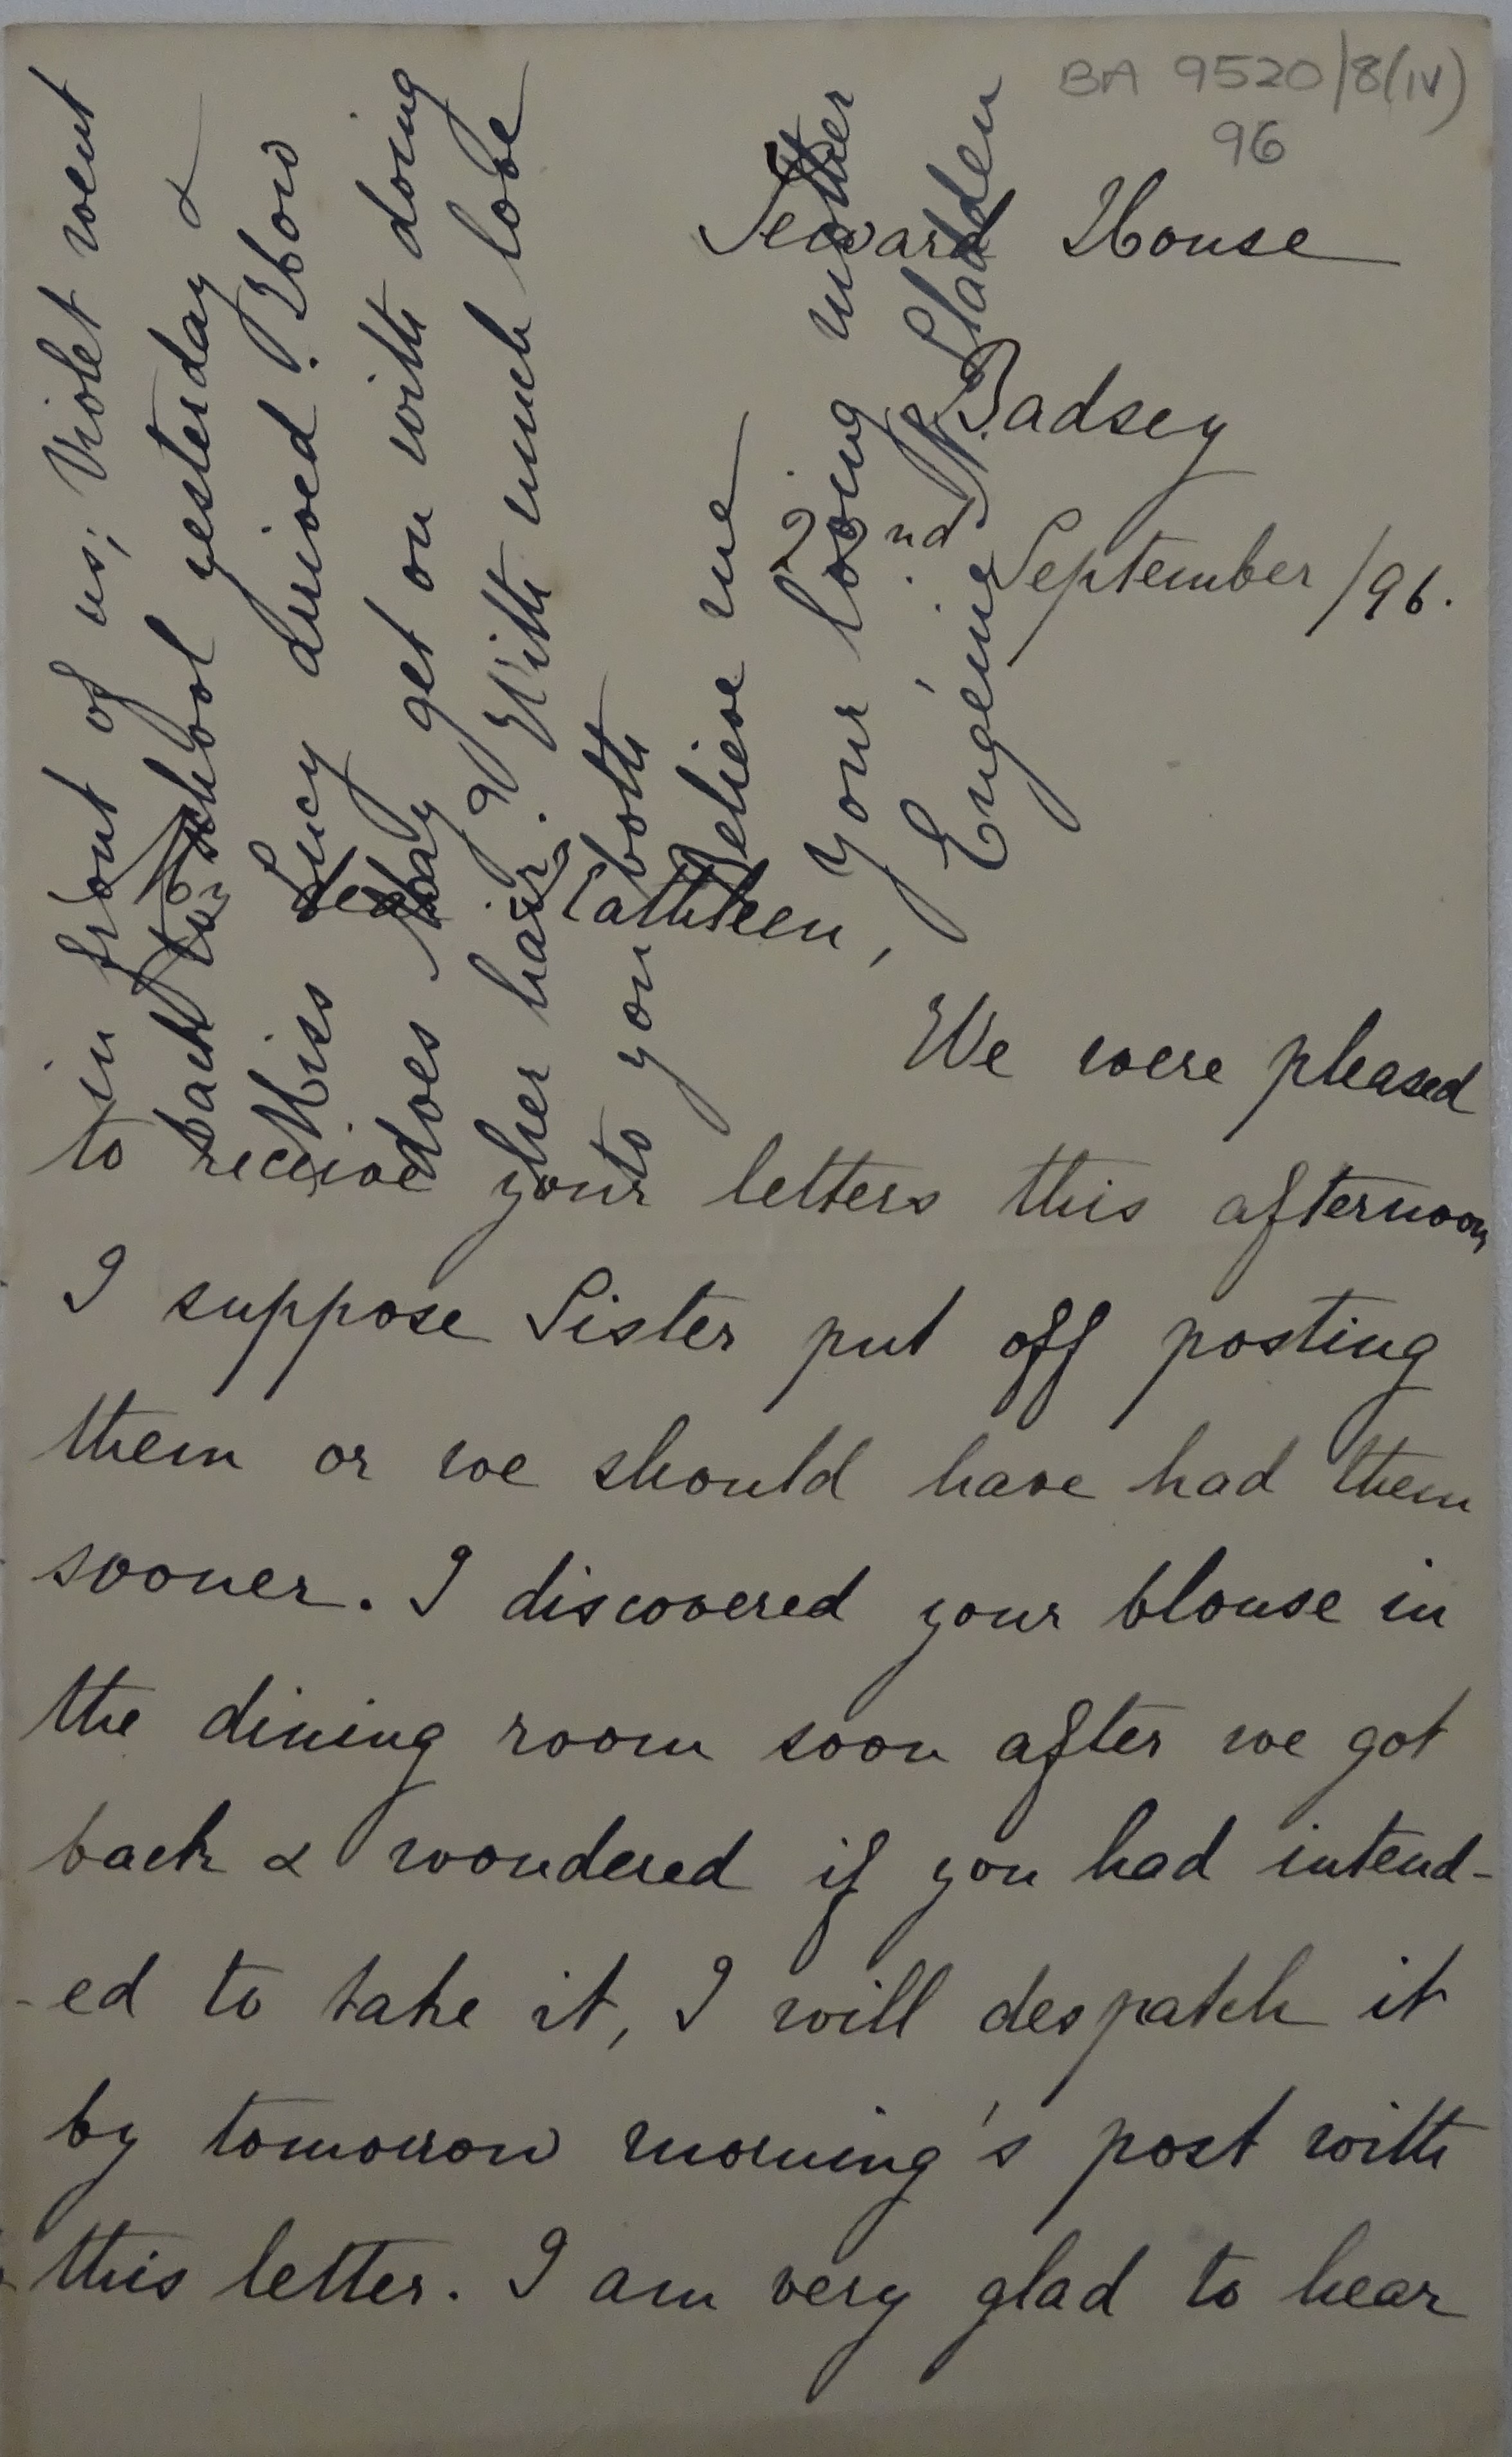 BA 9520/8(IV)
96
Seward House
Badsey
22nd September /96.
My dear Kathleen,
We were pleased
to receive your letters this afternoon
I suppose Sister put off posting
them or we should have had them
sooner. I discovered your blouse in
the dining room soon after we got
back & wondered if you had intend-
-ed to take it, I will despatch it
by tomorrow morning's post with
this letter. I am very glad to hear
in front of us; Violet went
back to school yesterday &
Miss Lucy arrived. How
does May get on with doing
her hair? With much love
to you both
Believe me
Your loving mother
Eugénie N. Sladden